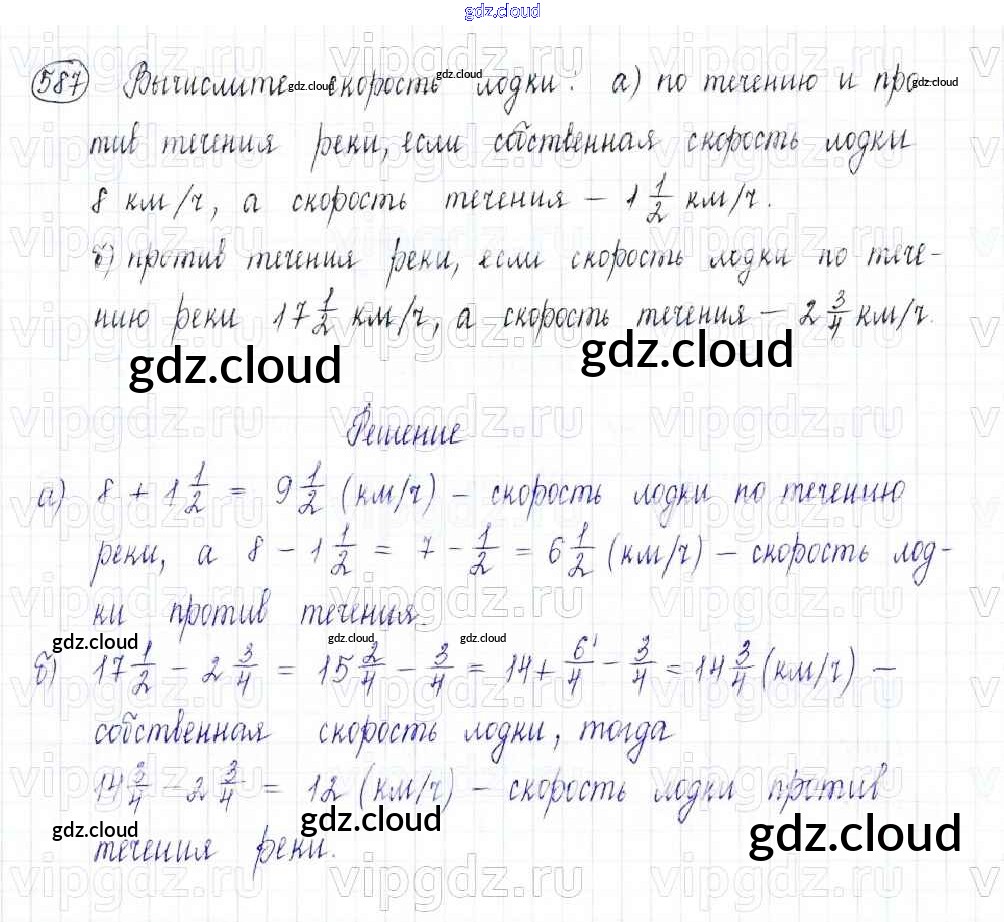 gdz.cloud
587 Вычислите скорость лодки: а) по течению и про
тив течения реки, если собственная скорость лодки
8 км/ч, а скорость течения – 1 1/2 км/ч.
б) против течения реки, если скорость лодки по тече-
нию реки 17 1/2 км/ч, а скорость течения – 2 3/4 км/ч.
gdz.cloud gdz.cloud
Решение
а) 8 + 1 1/2 = 9 1/2 (км/ч) – скорость лодки по течению
реки, а 8 – 1 1/2 = 7 – 1/2 = 6 1/2 (км/ч) – скорость лод-
ки против течения.
gdz.cloud gdz.cloud gdz.cloud
б) 17 1/2 – 2 3/4 = 15 2/4 – 3/4 = 14 + 6/4 – 3/4 = 14 3/4 (км/ч) –
собственная скорость лодки, тогда
14 3/4 – 2 3/4 = 12 (км/ч) – скорость лодки против
течения реки.
gdz.cloud gdz.cloud gdz.cloud